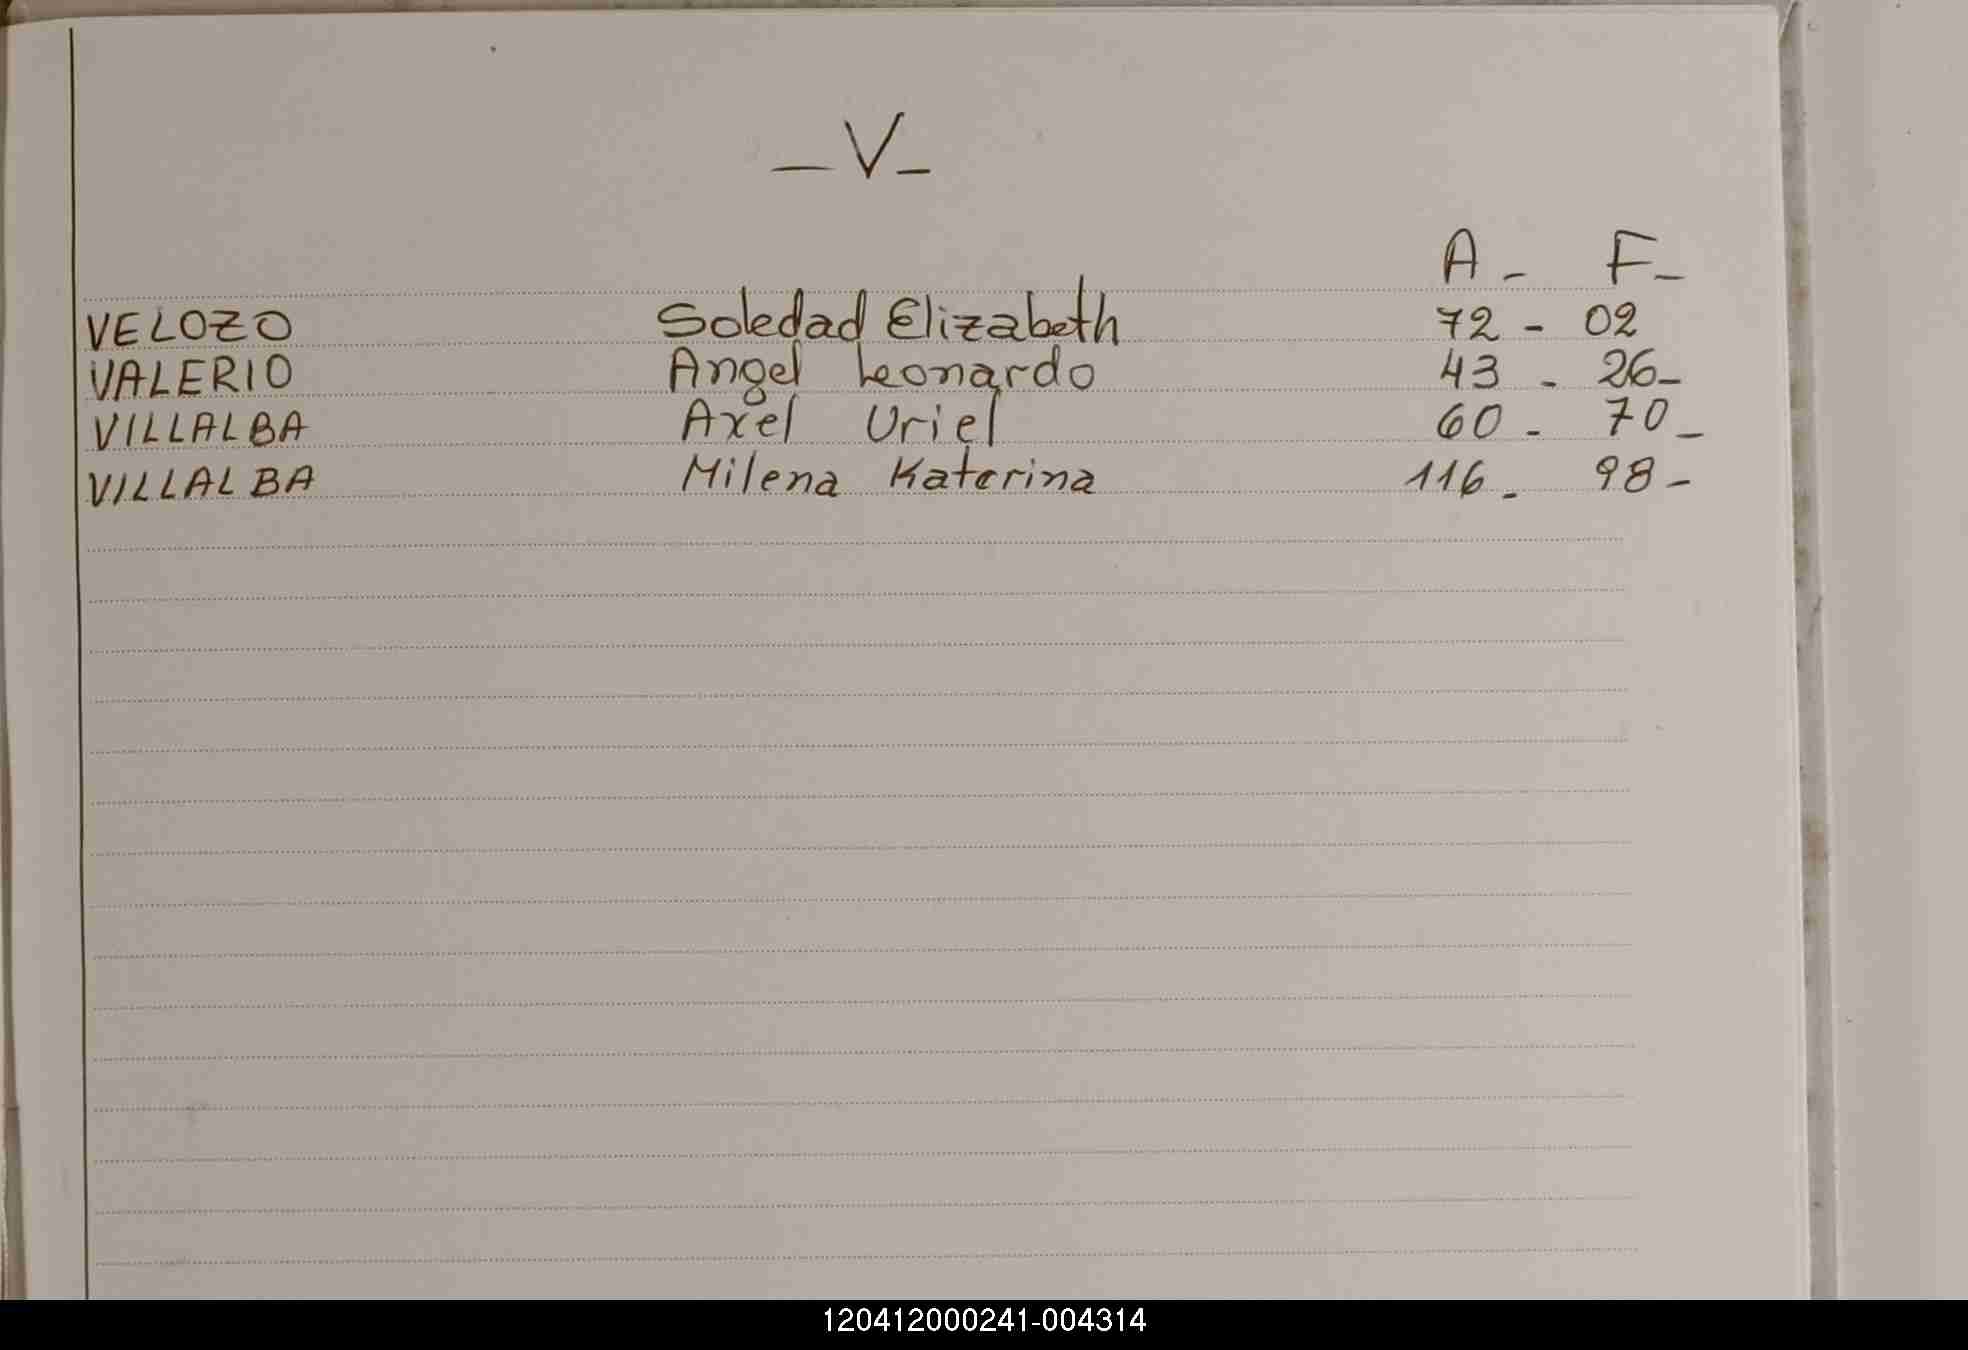 _ V _
A _ F _
VELOZO Soledad Elizabeth 72 - 02
VALERIO Angel Leonardo 43 - 26 -
VILLALBA Axel Uriel 60 - 70 _
VILLALBA Milena Katerina 116 - 98 -
120412000241-004314